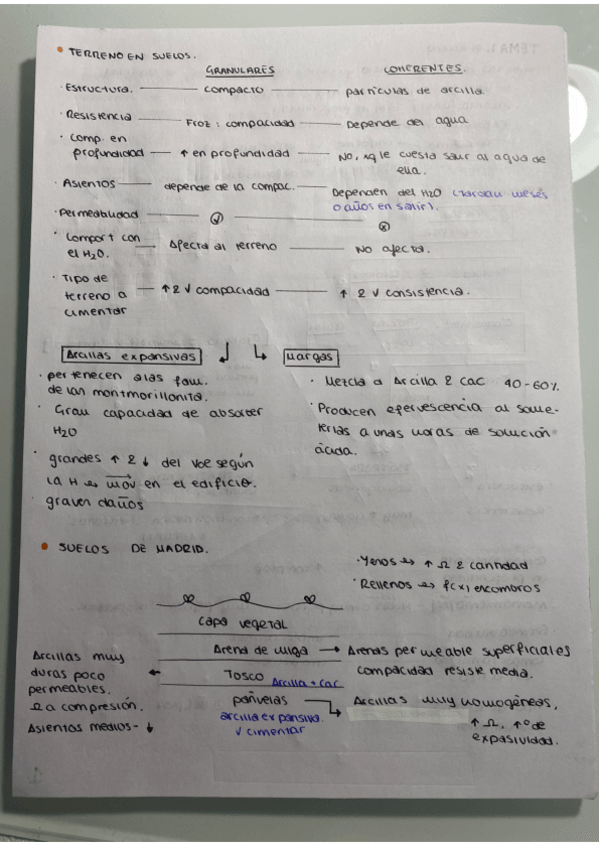 • TERRENO EN SUELOS.
GRANULARES COHERENTES.
· Estructura. — compacto — partículas de arcilla.
· Resistencia — Froz : compacidad — Depende del agua
· Comp. en profundidad — ↑ en profundidad — No, xq le cuesta salir al agua de ella.
· Asientos — depende de la compac. — Dependen del H2O (tardan meses o años en salir).
· Permeabilidad
· Comport con el H2O. → Afecta al terreno — No afecta.
· Tipo de terreno a cimentar — ↑ Ω √ compacidad — ↑ Ω √ consistencia.
Arcillas expansivas
· pertenecen a las fam.
de las montmorillonita.
· Gran capacidad de absorber
H2O
· grandes ↑ & ↓ del Vol según
la H ↦ mov en el edificio.
· graven daños
Margas
· Mezcla d Arcilla & CaC 40-60%.
· Producen efervescencia al some-
terlas a unas horas de solución
ácida.
• SUELOS DE MADRID.
· Yesos ↦ ↑ Ω & cantidad
· Rellenos ↦ f(x) escombros
Capa vegetal
Arena de miga → Arenas permeable superficiales
compacidad resiste media.
Tosco Arcilla + Cac
Arcillas muy
duras poco
permeables.
Ω a compresión.
Asientos medios - ↓
peñuelas
arcilla expansiva.
√ cimentar
Arcillas muy homogéneas,
↑ Ω, ↑º de
expasividad.